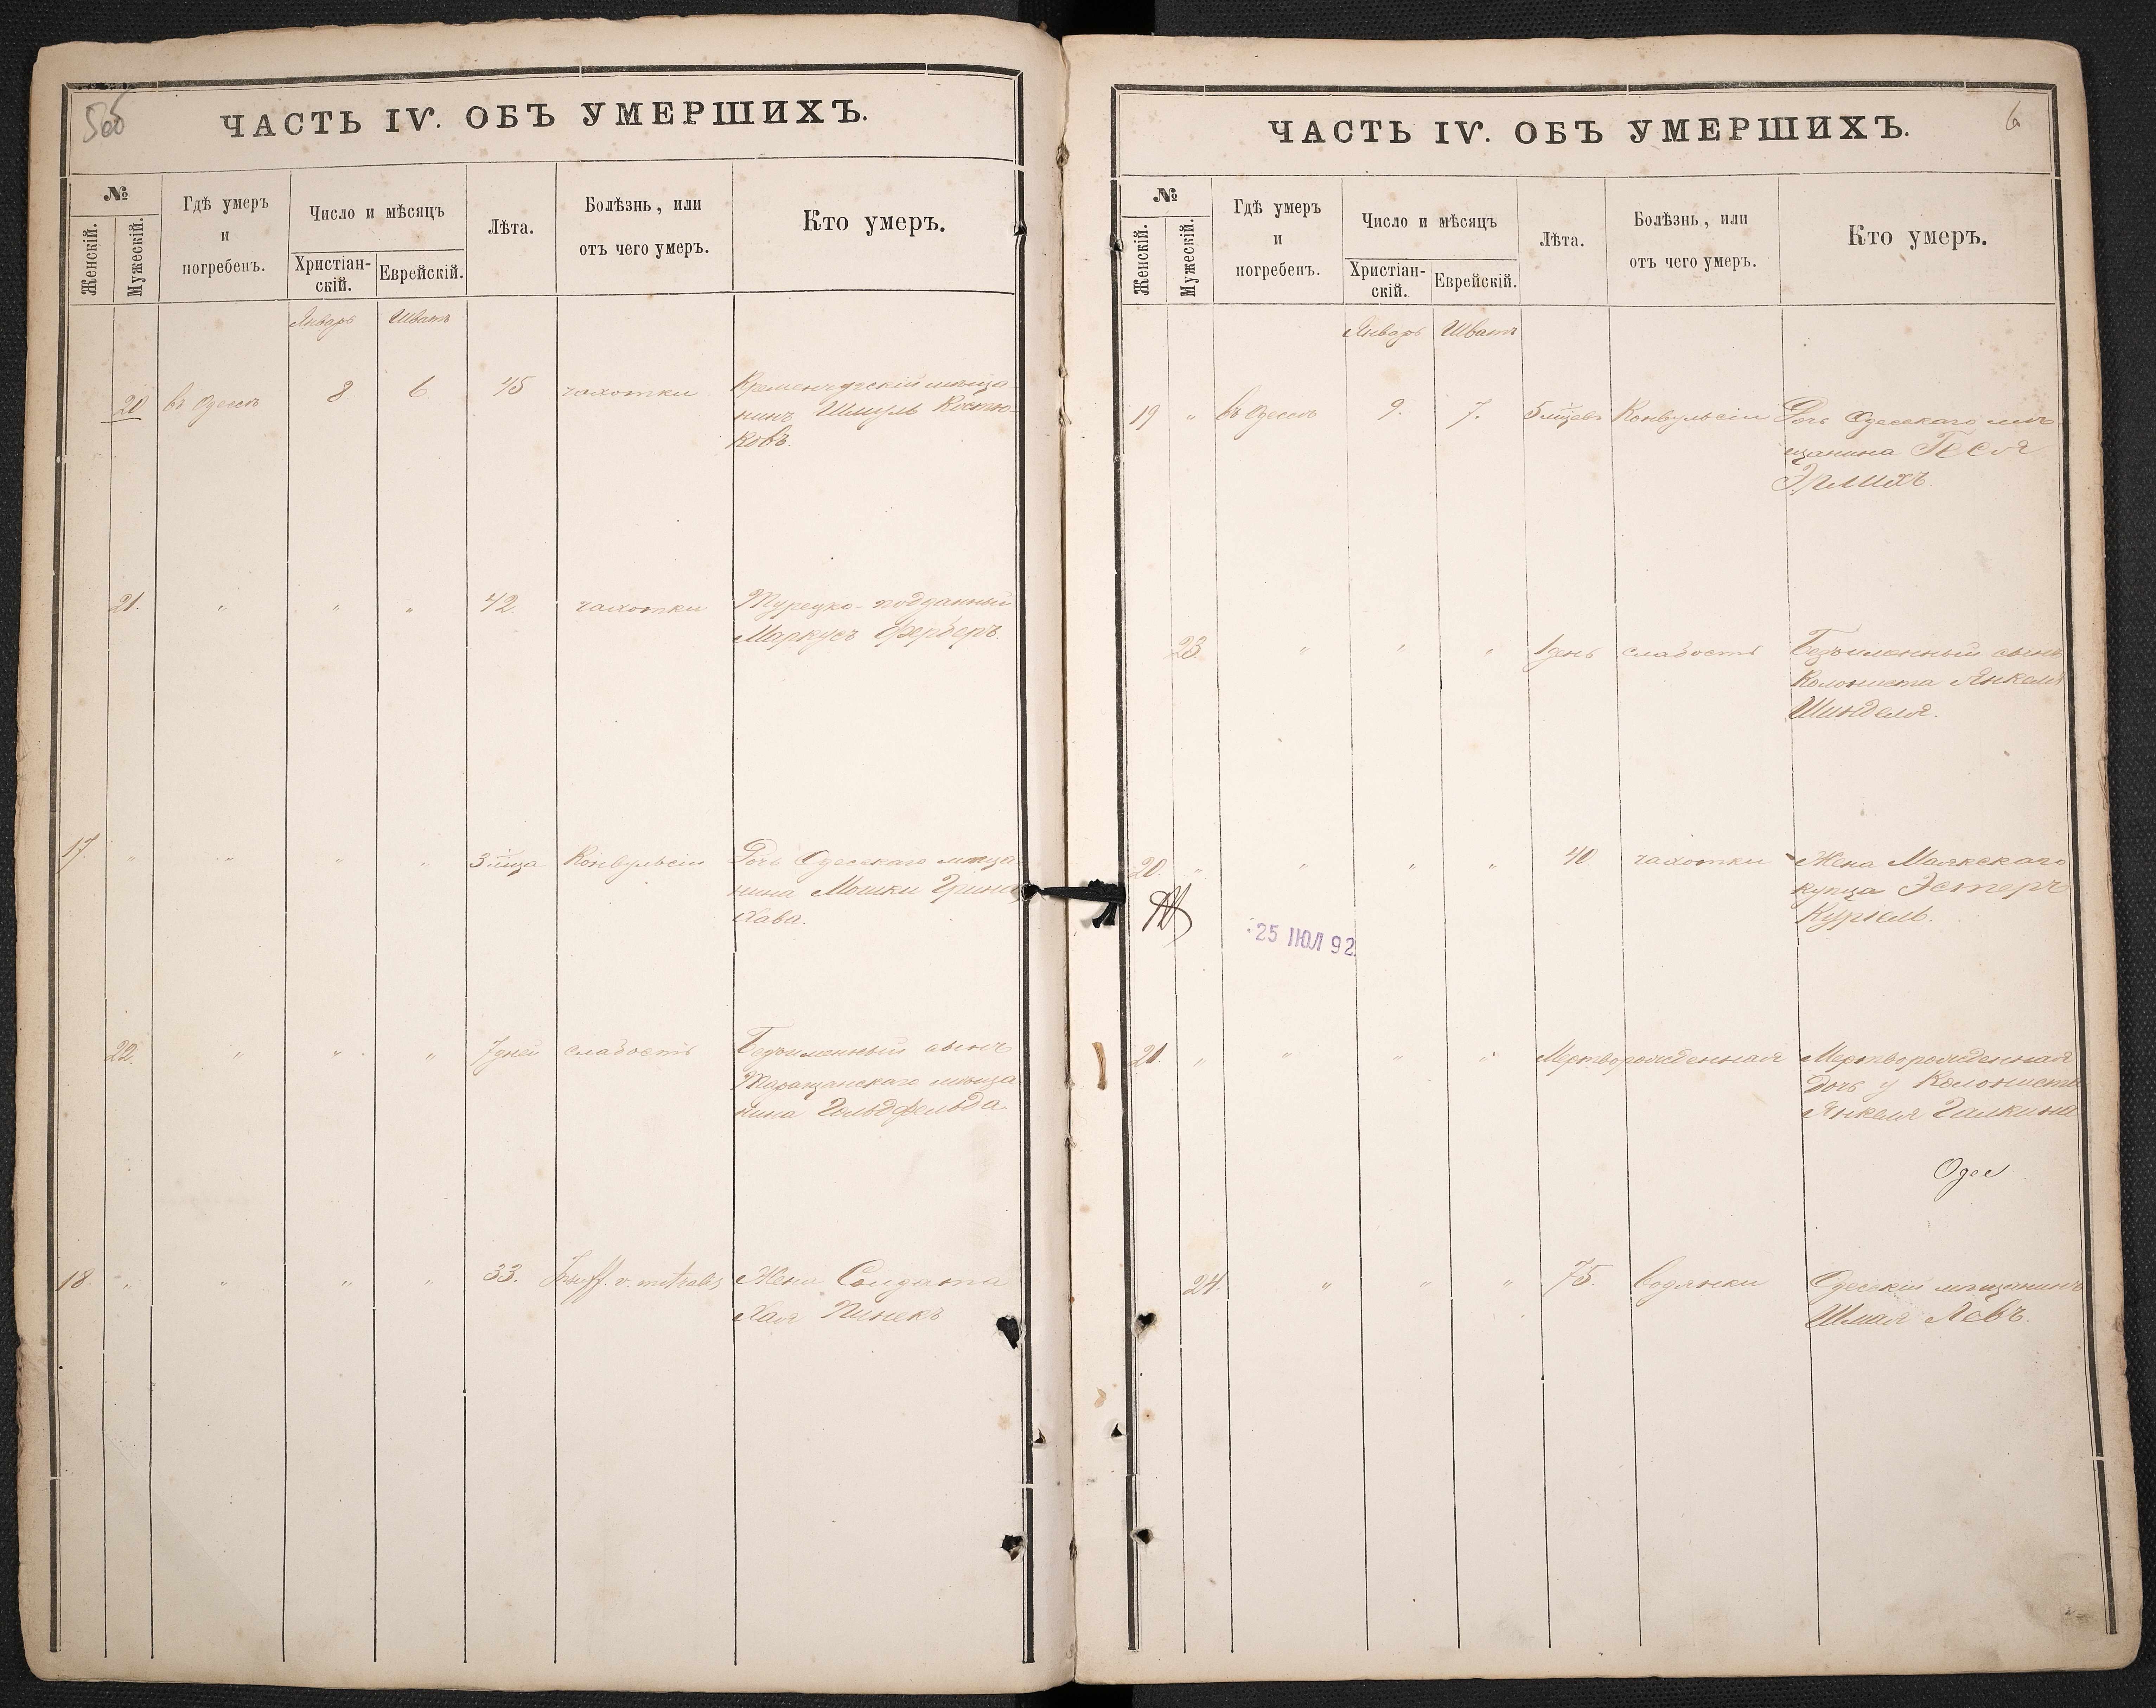 ЧАСТЬ IV. ОБЪ УМЕРШИХЪ.
№
Женскій.
Мужескій.
Гдѣ умеръ
и
погребенъ.
Число и мѣсяцъ
Христіан-
скій.
Еврейскій.
Лѣта.
Болѣзнь, или
отъ чего умеръ.
Кто умеръ.
Январь Шватъ
20 въ Одессѣ 8 6 45 чахотки Кременчугскій мѣща-
нинъ Шмуль Костю-
ковъ.
21. " " " 42. чахотки Турецко-подданный
Маркусъ Ферберъ.
17. " " " " 3 м-ца Конвульсіи Дочь Одесскаго мѣща
нина Мошки
Хава.
22. " " " 7 дней слабость Безъименный сынъ
Таращанскаго мѣща
нина Гольдфельда.
18. " " " " 33. Insuff. v. mitralis Жена Солдата
Хая Пинекъ
ЧАСТЬ IV. ОБЪ УМЕРШИХЪ.
6
№
Женскій.
Мужескій.
Гдѣ умеръ
и
погребенъ.
Число и мѣсяцъ
Христіан-
скій.
Еврейскій.
Лѣта.
Болѣзнь, или
отъ чего умеръ.
Кто умеръ.
Январь Шватъ
19 " въ Одессѣ 9. 7. 5 м-цевъ Конвульсіи Дочь Одесскаго мѣ
щанина Геся
Эрлихъ.
23 " " " 1 день слабость Безъименный сынъ
Колониста Янкеля
Шинделя.
20. " " " " 40. чахотки Жена Маякскаго
купца Эстеръ
Куріель.
25 ІЮЛ 92
21. " " " " Мертворожденная Мертворожденная
дочь у Колониста
Янкеля Галкина
Одес
24. " " " 75. водянки Одесскій мѣщанинъ
Шмая Левъ.